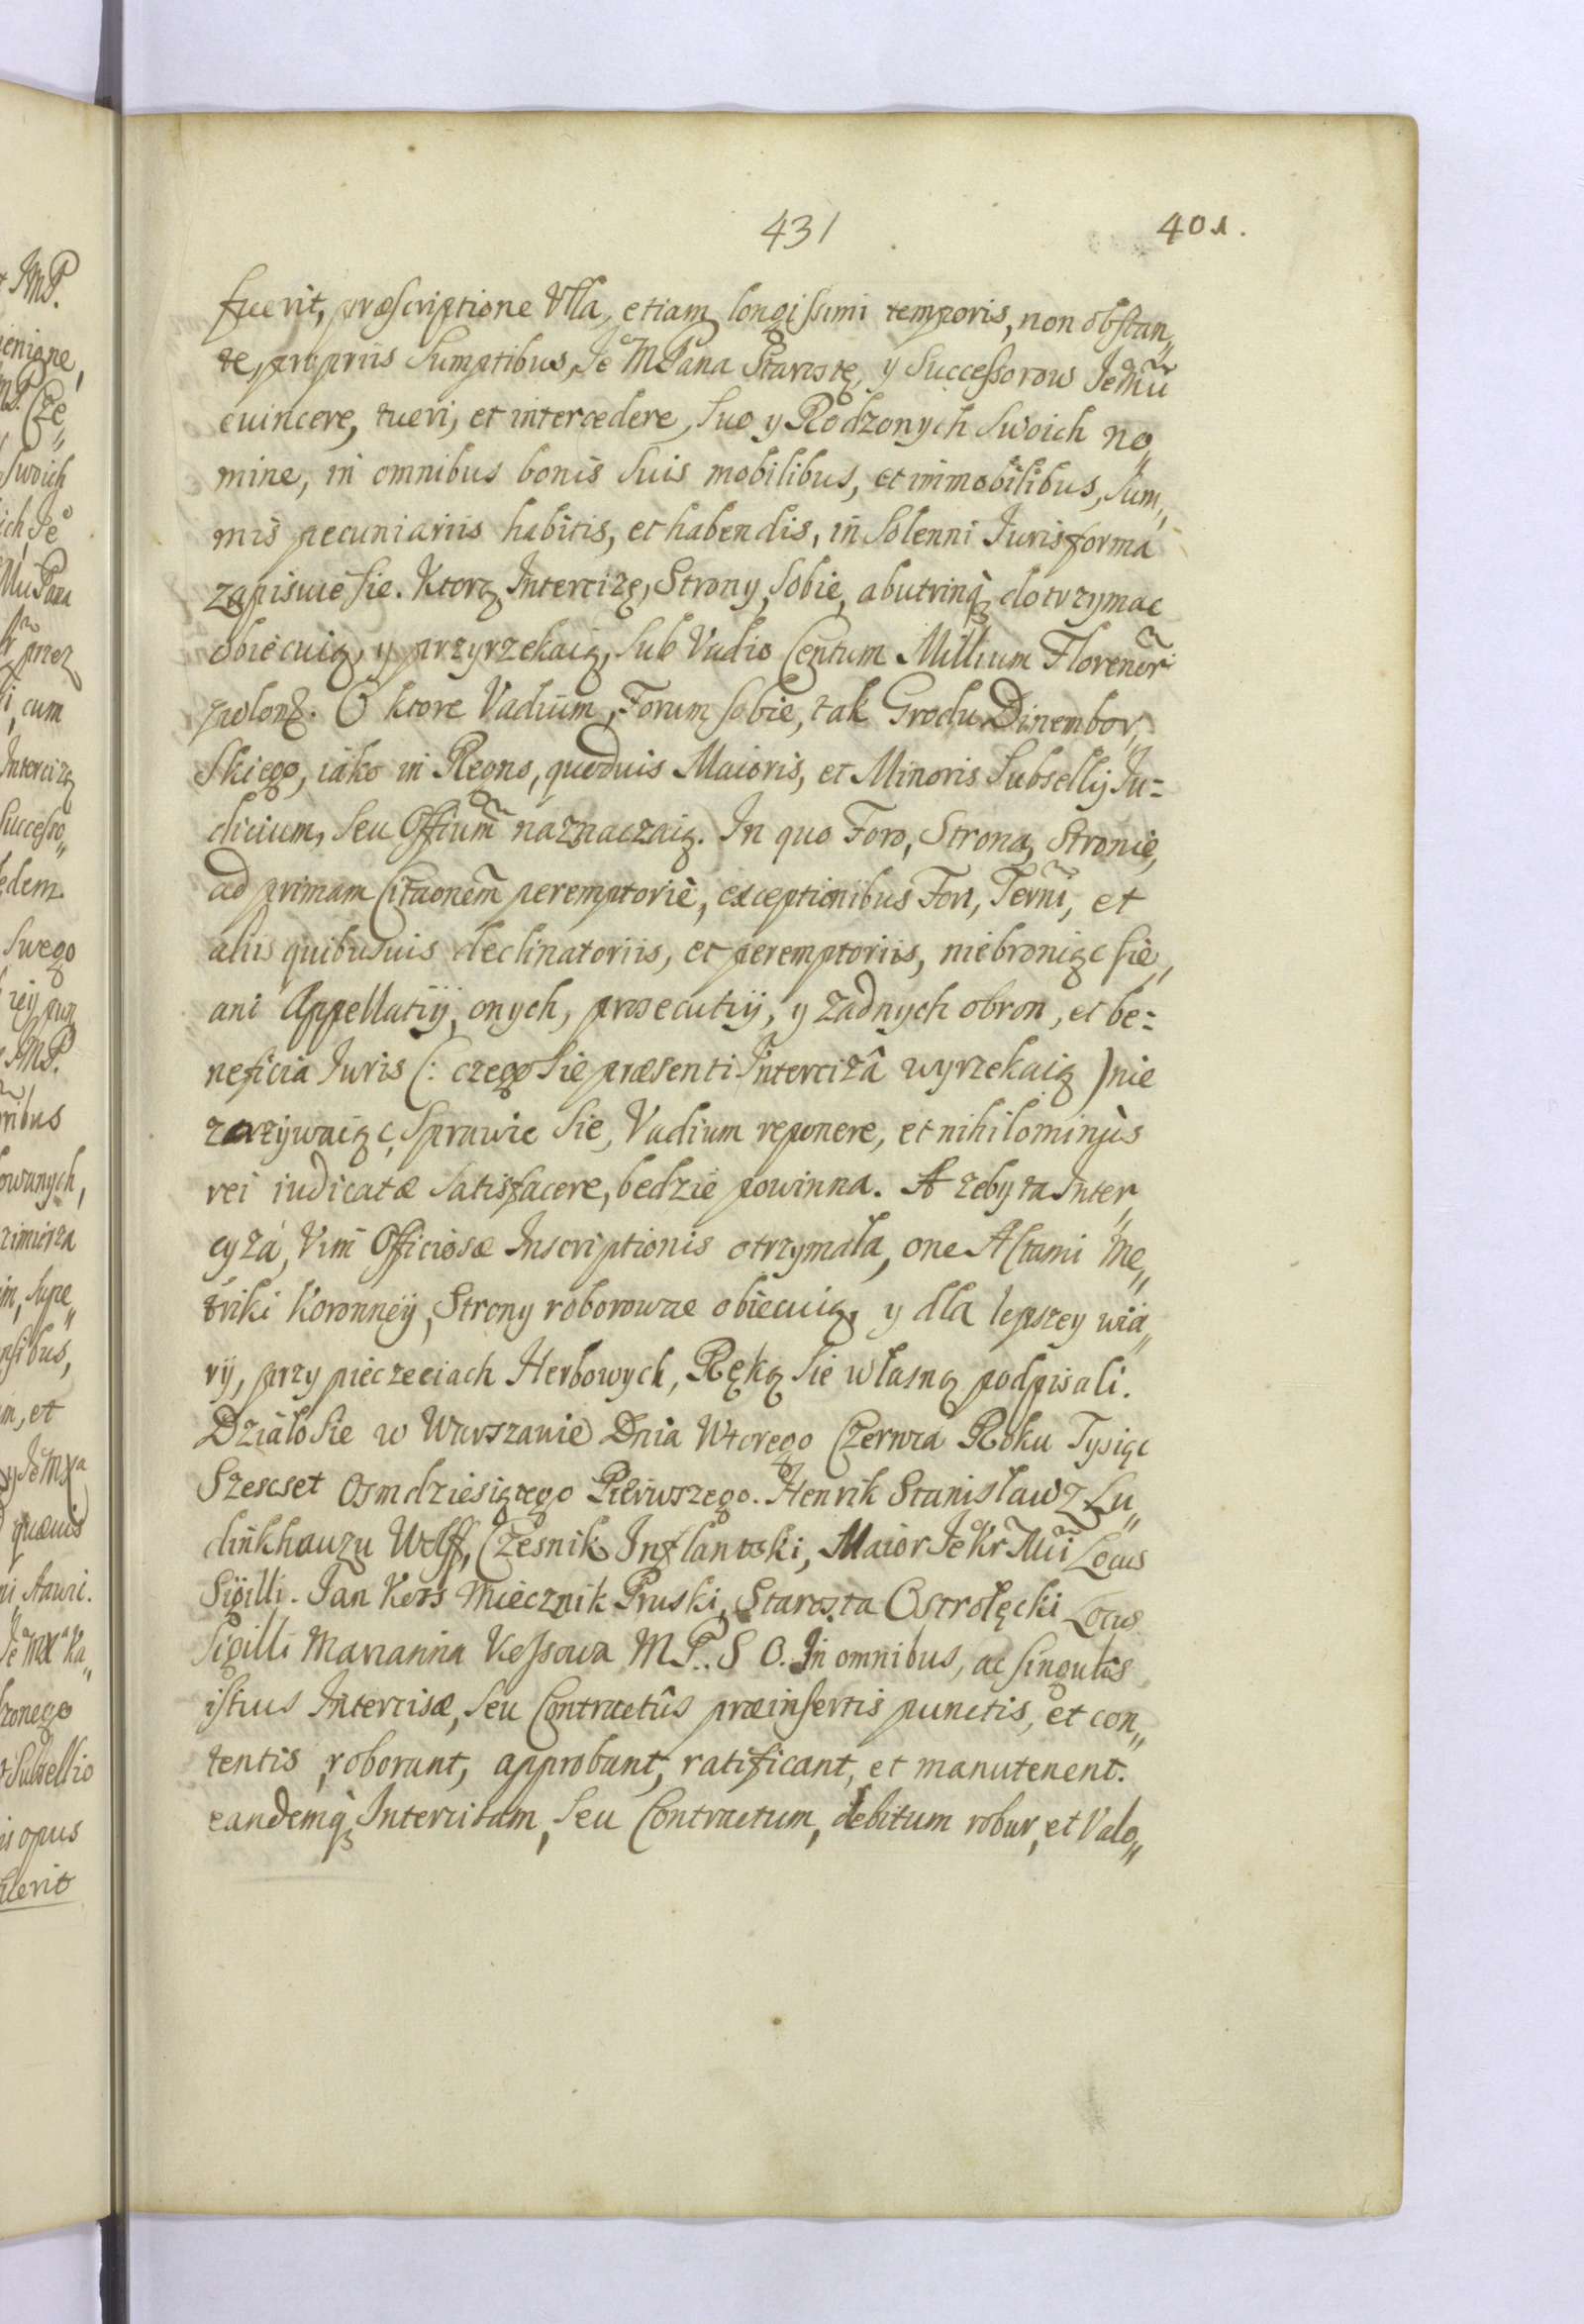 431 401.
fuerit, præscriptione Vlla, etiam longissimi temporis, non obstan„
te, propriis Sumptibus, Je° MPana Starostę, y Successorow Je° Mũ
euincere, tueri, et intercedere, Suo y Rodzonych Swoich no„
mine, in omnibus bonis Suis mobilibus, et immobilibus, Sum„
mis pecuniariis habitis, et habendis, in Solenni Iuris forma
zapisuie sie. Ktorą Intercizę, Strony, Sobie, ab utrinq; dotrzymac
obiecuią, y przyrzekaią, Sub Vadio Centum Millium Florenor̃
polon. O ktore Vadium, Forum sobie, tak Grodu Dinembor„
skiego, iako in Regno, quoduis Maioris, et Minoris Subsellij Iu=
dicium, Seu Offium̃ naznaczaią. In quo Foro, Strona, Stronie,
ad primam Citaonem̃ peremptoriè, exceptionibus Fori, Ter̃ni, et
aliis quibusuis declinatoriis, et peremptoriis, niebroniąc sie,
ani Appellatij, onych, prosecutij, y zadnych obron, et be=
neficia Iuris (: czego Sie præsenti Intercizâ wyrzekaią ) nie
zazÿwaiąc, Sprawic Sie, Vadium reponere, et nihilominùs
rei iudicatæ Satisfacere, bedzie powinna. A zeby ta Inter„
cyza, Vim Officiosæ Inscriptionis otrzymała, one Actami Me„
triki Koronneÿ, Strony roborowac obiecuią, y dla lepszey wia„
rÿ, przy pieczeciach Herbowych, Ręką Sie własną podpisali.
Działo Sie w Warszawie Dnia Wtorego Czerwca Roku Tysiąc
Szescset Osmdziesiątego Pierwszego. Henrik Stanisław z Lu„
dinkhauzu Wolff, Czesnik Inflantski, Maior Je° Kr Mci Locus
Sigilli. Jan Koss Miecznik Pruski, Starosta Ostrołęcki Locus
Sigilli Marianna Kossowa M P. S O. In omnibus, ac singulis
istius Intercisæ, Seu Contractûs præinsertis punctis, et con„
tentis, roborant, approbant, ratificant, et manutenent.
eandemq; Intercisam, Seu Contractum, debitum robur, et Valo„